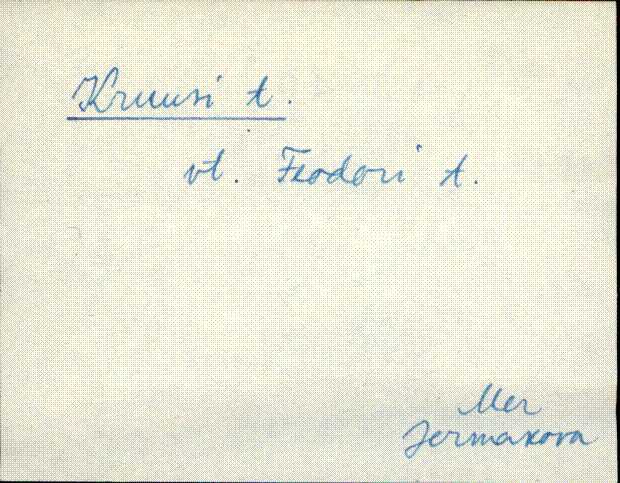 Kruusi t.
vt. Feodori t.
Mer
Jermakova